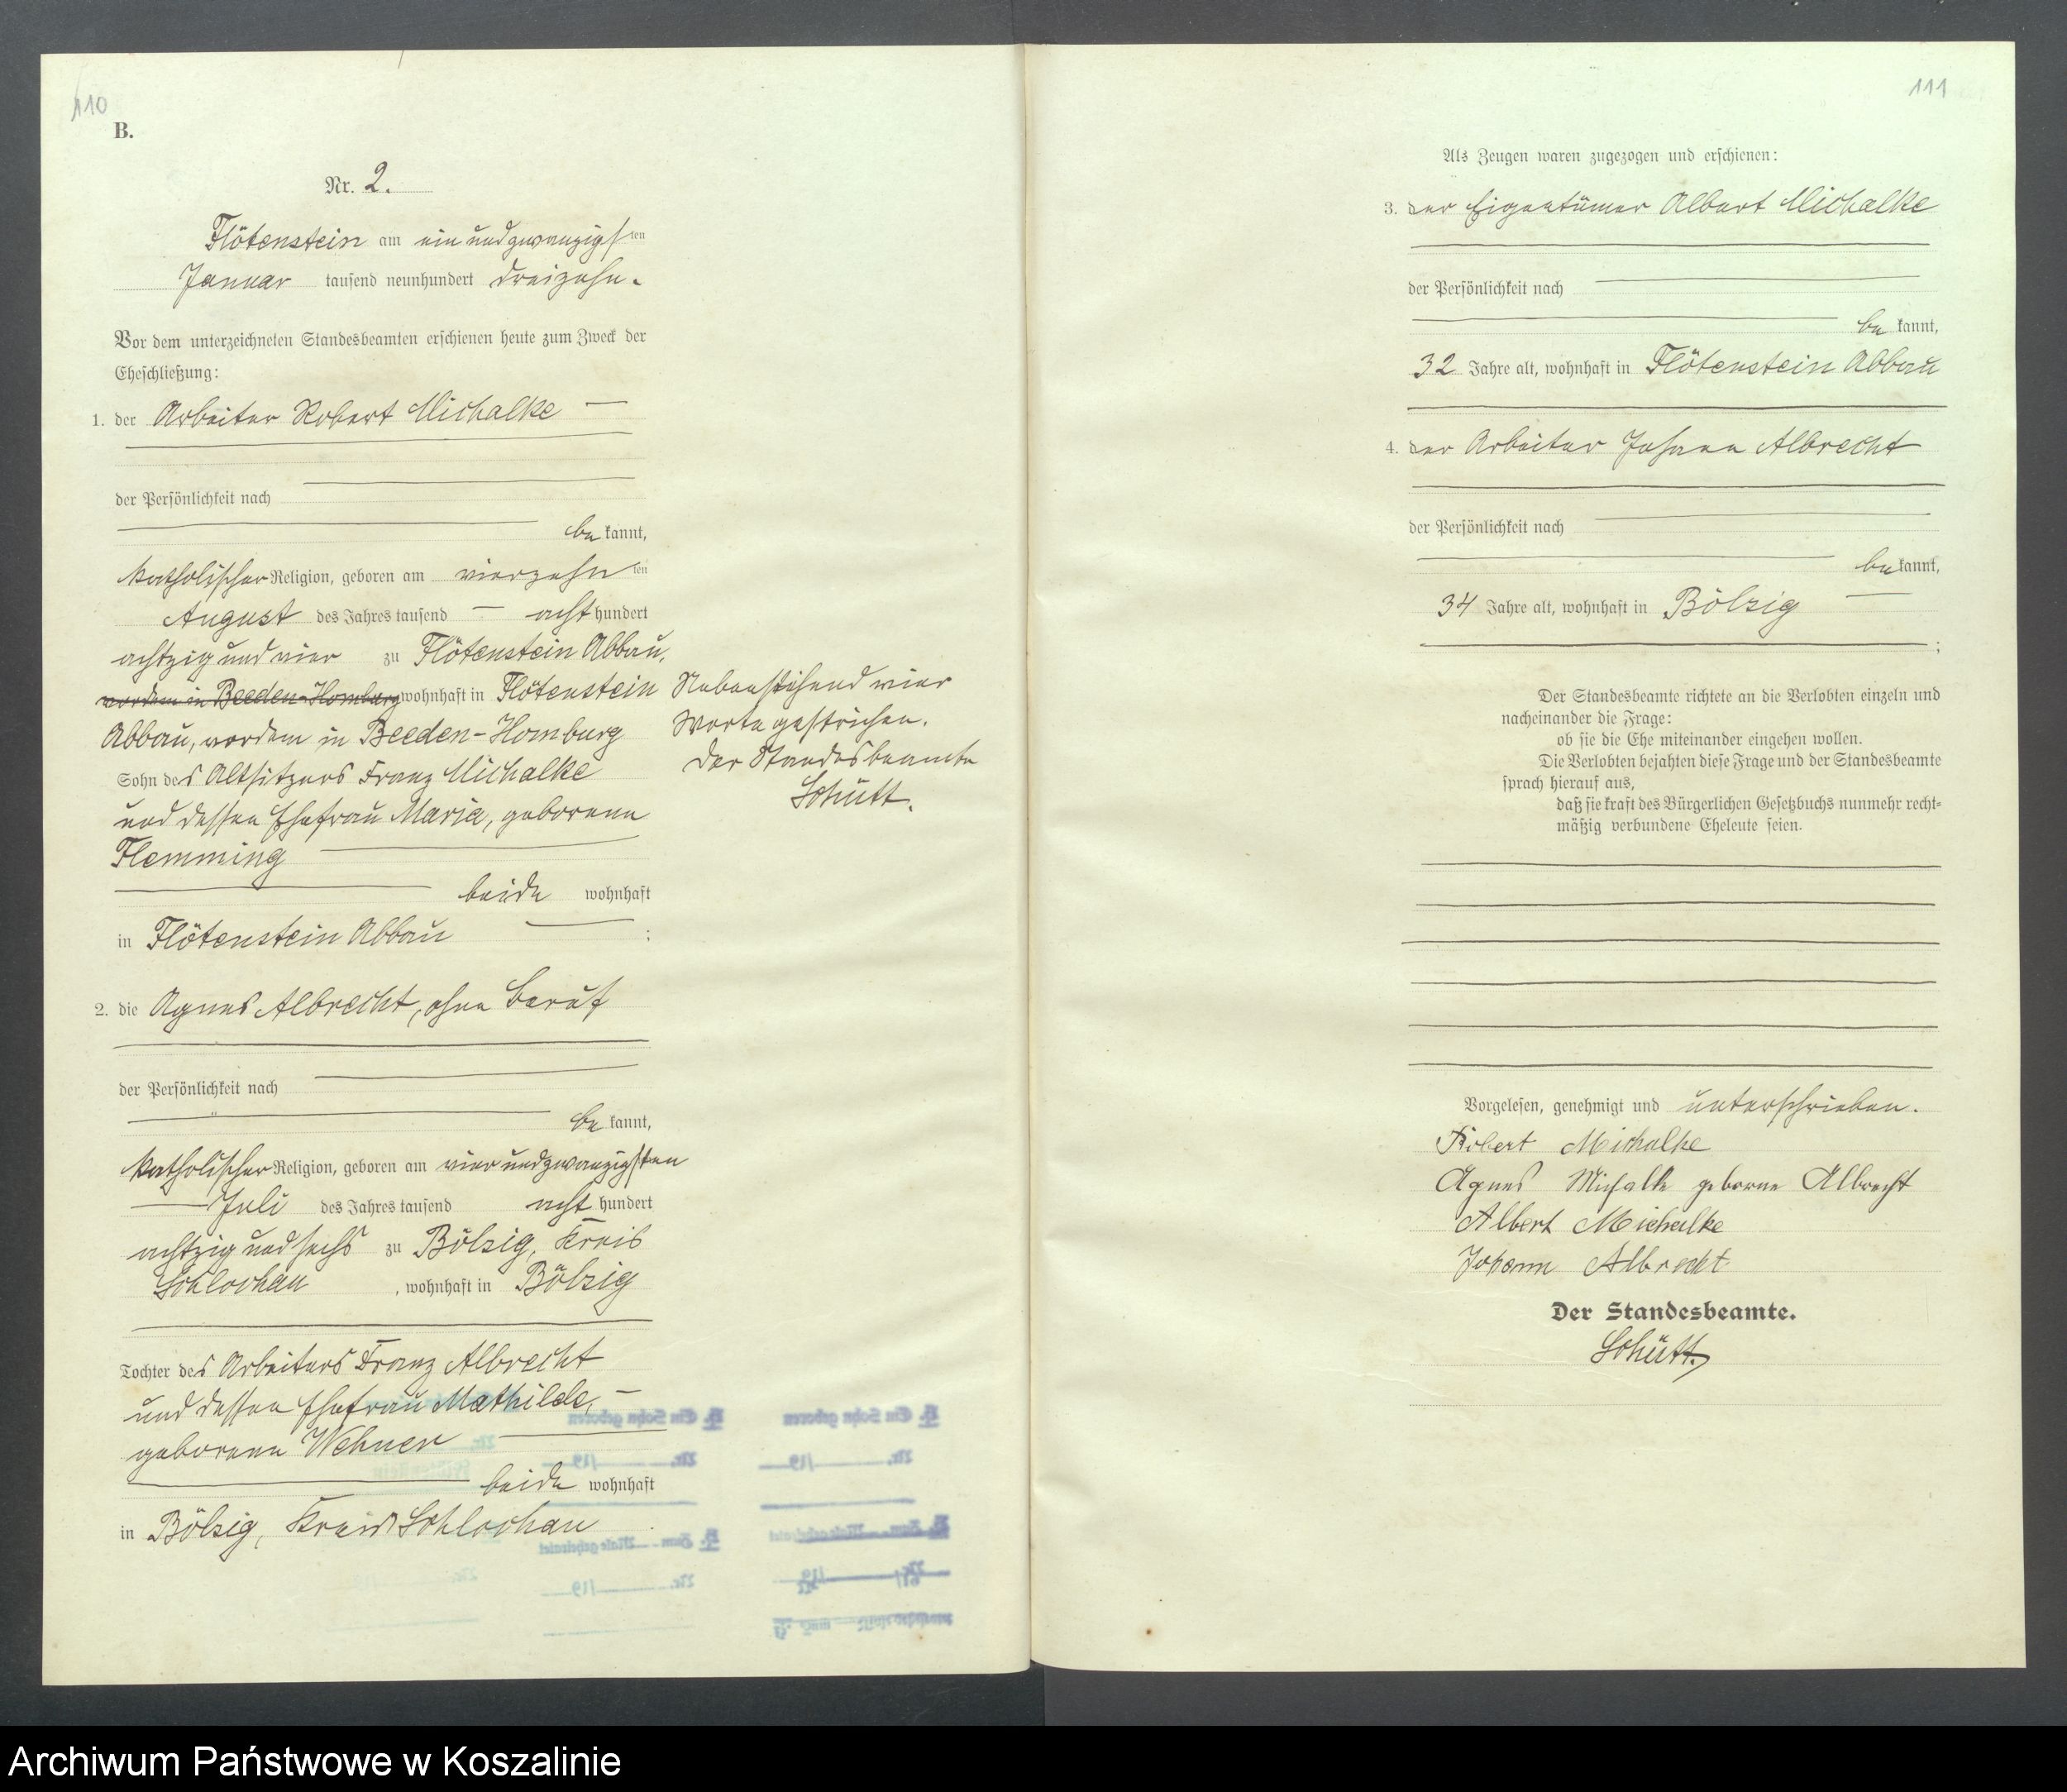 110
B.
Nr. 2.
Flötenstein am ein und zwanzigsten
Januar tausend neunhundert dreizehn.
Vor dem unterzeichneten Standesbeamten erschienen heute zum Zweck der
Eheschließung:
1. der Arbeiter Robert Michalke
der Persönlichkeit nach
be kannt,
katholischer Religion, geboren am vierzehnten
August des Jahres tausend acht hundert
achtzig und vier zu Flötenstein Abbau,
vordem in Beeden-Homburg wohnhaft in Flötenstein
Abbau, vordem in Beeden-Homburg
Sohn des Altsitzers Franz Michalke
und dessen Ehefrau Maria, geborene
Flemming
beide wohnhaft
in Flötenstein Abbau ;
Nebenstehend vier
Worte gestrichen.
Der Standesbeamte
Schütt.
2. die Agnes Albrecht, ohne Beruf
der Persönlichkeit nach
be kannt,
katholischer Religion, geboren am vier und zwanzigsten
Juli des Jahres tausend acht hundert
achtzig und sechs zu Bölzig, Kreis
Schlochau , wohnhaft in Bölzig
Tochter des Arbeiters Franz Albrecht
und dessen Ehefrau Mathilde,
geborene Wehner
beide wohnhaft
in Bölzig, Kreis Schlochau
111
Als Zeugen waren zugezogen und erschienen:
3. der Eigentümer Albert Michalke
der Persönlichkeit nach
be kannt,
32 Jahre alt, wohnhaft in Flötenstein Abbau
4. der Arbeiter Johann Albrecht
der Persönlichkeit nach
be kannt,
34 Jahre alt, wohnhaft in Bölzig
;
Der Standesbeamte richtete an die Verlobten einzeln und
nacheinander die Frage:
ob sie die Ehe miteinander eingehen wollen.
Die Verlobten bejahten diese Frage und der Standesbeamte
sprach hierauf aus,
daß sie kraft des Bürgerlichen Gesetzbuchs nunmehr recht-
mäßig verbundene Eheleute seien.
Vorgelesen, genehmigt und unterschrieben.
Robert Michalke
Agnes Michalke geborne Albrecht
Albert Michalke
Johann Albrecht
Der Standesbeamte.
Schütt.
Archiwum Państwowe w Koszalinie